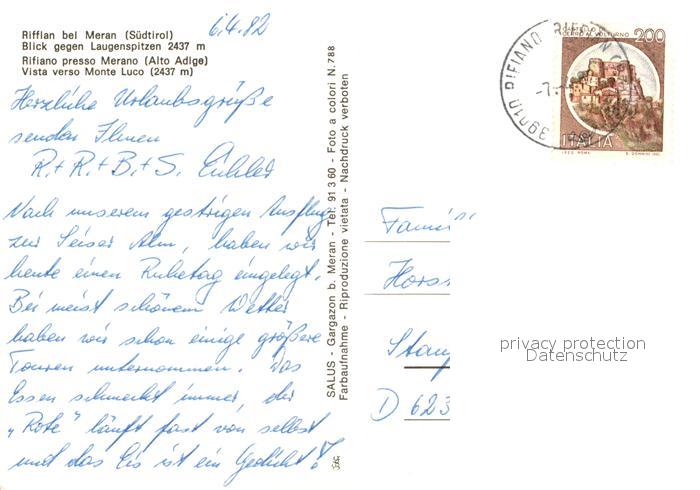 6.4.82
Riffian bei Meran (Südtirol)
Blick gegen Laugenspitzen 2437 m
Rifiano presso Merano (Alto Adige)
Vista verso Monte Luco (2437 m)
Herzliche Urlaubsgrüße
senden Ihnen
R.+ R.+ B.+ S.
Nach unserem gestrigen Ausflug
zur Seiser Alm, haben wir
heute einen Ruhetag eingelegt.
Bei meist schönem Wetter
haben wir schon einige größere
Touren unternommen. Das
Essen schmeckt immer, der
„Rote" läuft fast von selbst
und das Eis ist ein Gedicht!
SALUS - Gargazon b. Meran - Tel. 91 3 60 - Foto a colori N. 788
Farbaufnahme - Riproduzione vietata - Nachdruck verboten
39010 RIFIANO RIFFIAN
CASTELLO
CERRO AL VOLTURNO
200
ITALIA
Fami
Hors
D 623
privacy protection
Datenschutz